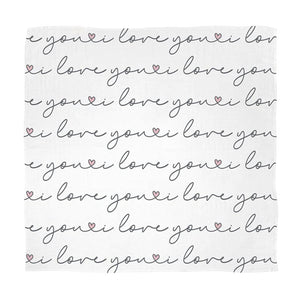 e you i love you i
i love you i love you
e you i love you i
i love you i love you
e you i love you i
i love you i love you
e you i love you i
i love you i love you